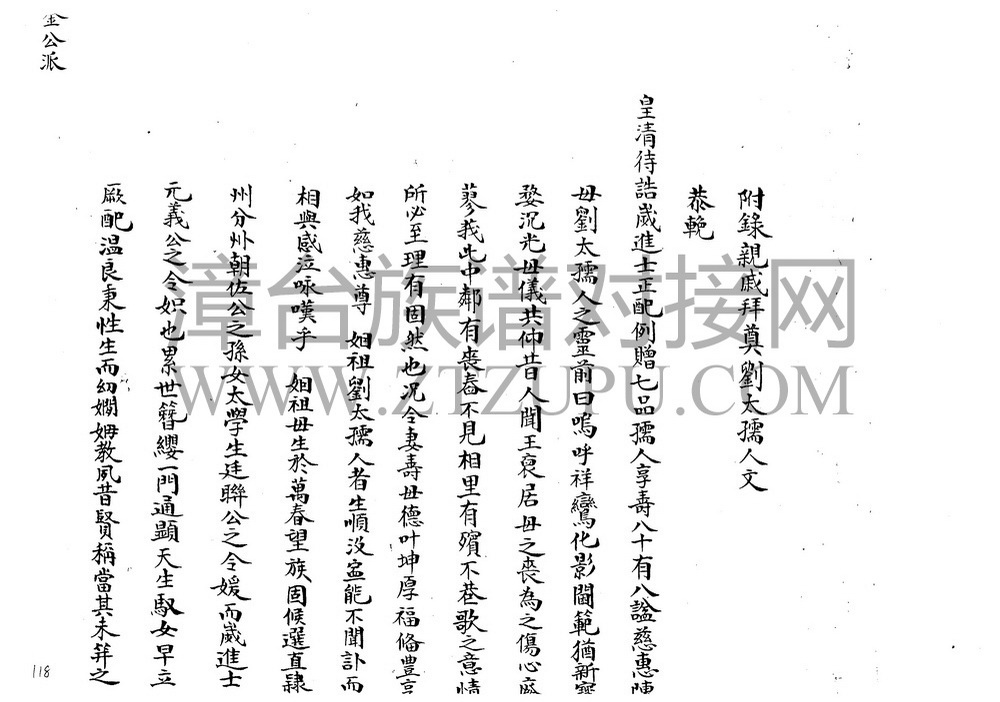 附錄親戚拜奠劉太孺人文
恭輓
皇清待誥嵗進士正配例贈七品孺人享壽八十有八諡慈惠陳
母劉太孺人之靈前曰嗚呼祥鸞化影閫範猶新寳
婺沉光母儀共仰昔人聞王裒居母之喪為之傷心廢
蓼莪此中鄰有喪舂不見相里有殯不巷歌之意情
所必至理有固然也况令妻壽母德叶坤厚福俻豊亨
如我慈惠尊 姻祖劉太孺人者生順没寍能不聞訃而
相與感泣咏嘆乎 姻祖母生於萬春望族固候選直隷
州分州朝佐公之孫女太學生廷聯公之令媛而嵗進士
元義公之令姒也累世簪纓一門通顯天生馭女早立
厥配温良秉性生而幼嫻姆教夙昔賢稱當其未笄之
金公派
118
漳台族谱对接网
WWW.ZTZUPU.COM